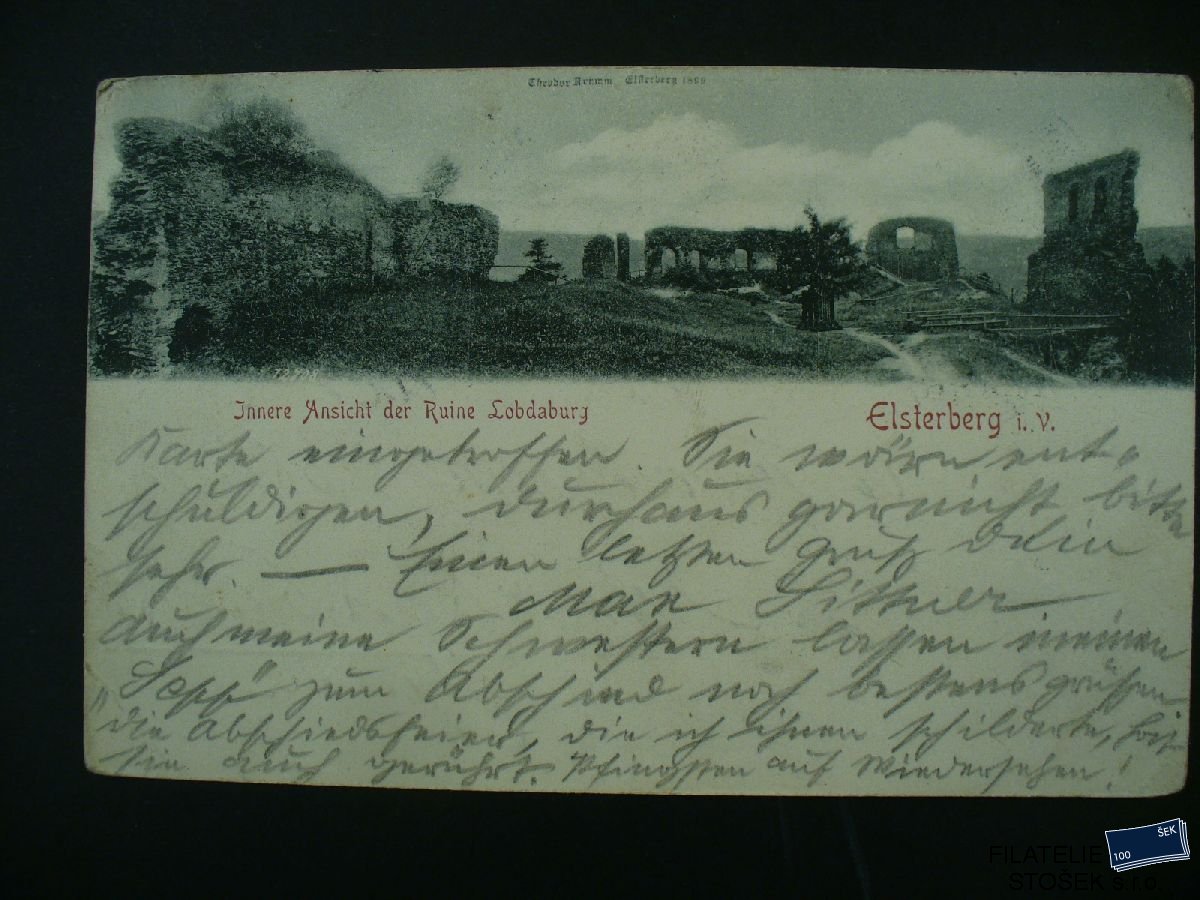 Theodor Krumm Elsterberg 1899
Innere Ansicht der Ruine Lobdaburg
Elsterberg i. V.
Karte eingetroffen. Sie wärn ent-
schuldigen, durchaus garnicht bitte
sehr. — Einen letzten Gruß
Max Littner
Auch meine Schwestern lassen meinen
"Seppi" zum Abschied noch bestens grüßen
die Abschiedsfeier, die ich ihnen schilderte,
sie auch gerührt. Pfingsten auf Wiedersehen!
100 ŠEK
FILATELIE
STOŠEK s.r.o.